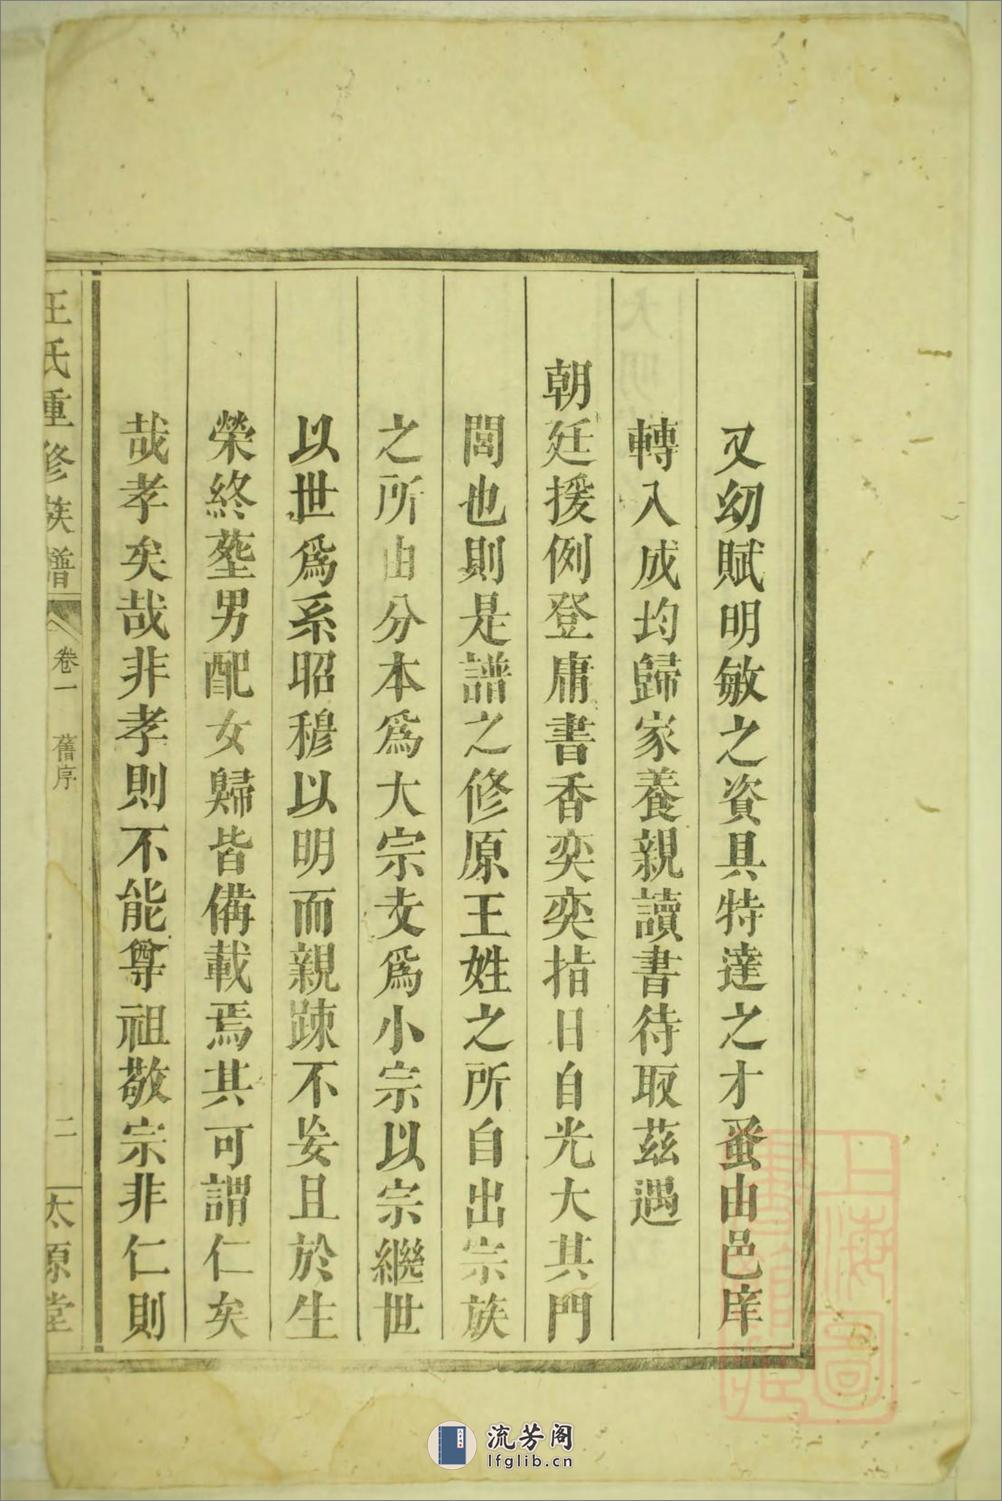 又幼賦明敏之資具特達之才蚤由邑庠
轉入成均歸家養親讀書待取茲遇
朝廷援例登庸書香奕奕指日自光大其門
閭也則是譜之修原王姓之所自出宗族
之所由分本為大宗支為小宗以宗繼世
以世為系昭穆以明而親踈不妄且於生
榮終塟男配女歸皆備載焉其可謂仁矣
哉孝矣哉非孝則不能尊祖敬宗非仁則
王氏重修族譜 卷一 舊序 二 太原堂
上海圖書館藏
流芳阁
lfglib.cn